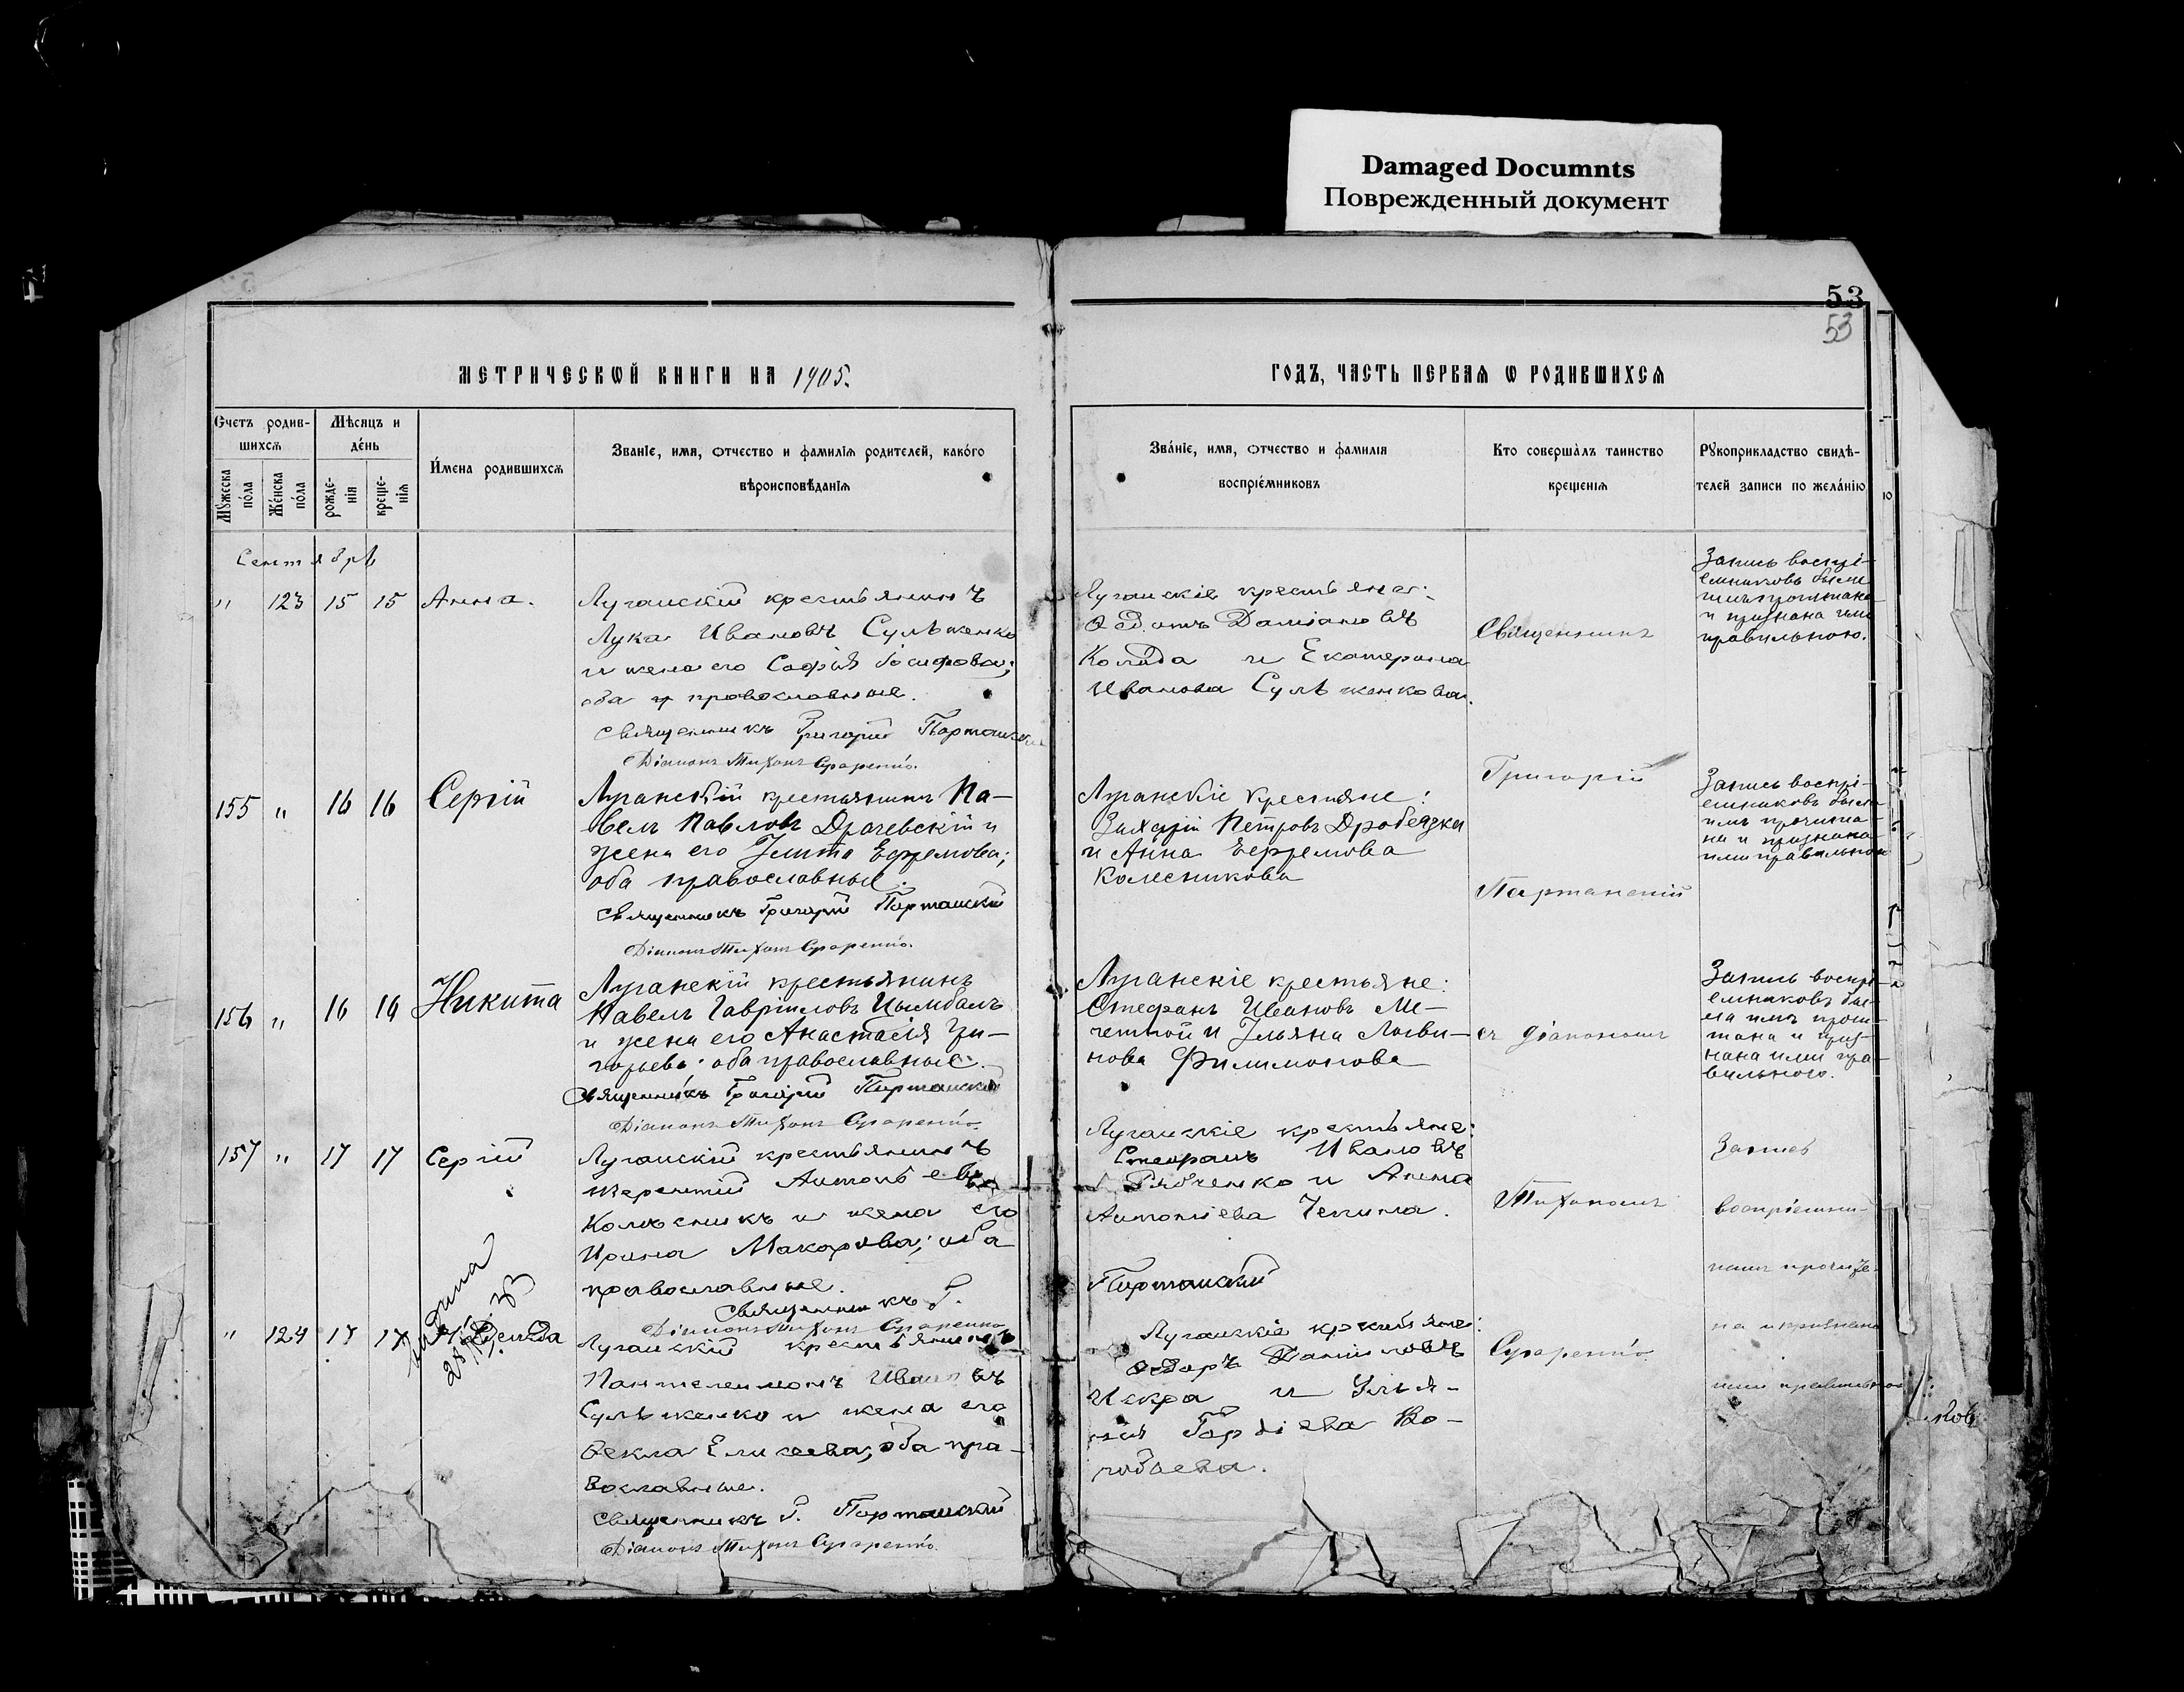 Damaged Documnts
Поврежденный документ
53
53
МЕТРИЧЕСКѠЙ КНИГИ НА 1905.
ГОДЪ, ЧАСТЬ ПЕРВАЯ Ѡ РОДИВШИХСЯ
Счетъ родив-
шихся
Мужеска пола
Женска пола
Мѣсяцъ и
день
рожде-
нія
креще-
нія
Имена родившихся
Званіе, имя, отчество и фамилія родителей, какого
вѣроисповѣданія
Званіе, имя, отчество и фамилія
воспріемниковъ
Кто совершалъ таинство
крещенія
Рукоприкладство свидѣ-
телей записи по желанію
Сентябрь
" 123 15 15 Анна.
Луганскій крестьянинъ
Лука Ивановъ
и жена его Софія Іосифова;
оба православные.
Священникъ Григорій Партанскій
Діаконъ Тихонъ
Луганскіе крестьяне:
Ѳедотъ Даміановъ
Коляда и Екатерина
Иванова
Священникъ
Запись воспрі-
емниковъ была
имъ прочитана
и признана ими
правильною.
155 " 16 16 Сергій
Луганскій крестьянинъ Па-
велъ Павловъ Драчевскій и
жена его Улита Ефремова;
оба православные.
Священникъ Григорій Партанскій
Діаконъ Тихонъ
Луганскіе крестьяне:
Захарій Петровъ Дробязка
и Анна Ефремова
Колесникова
Григорій
Партанскій
Запись воспрі-
емниковъ была
имъ прочита-
на и признана
ими правильною
156 " 16 16 Никита
Луганскій крестьянинъ
Павелъ Гавріиловъ Цымбалъ
и жена его Анастасія Гри-
горьева; оба православные.
Священникъ Григорій Партанскій
Діаконъ Тихонъ
Луганскіе крестьяне:
Стефанъ Ивановъ Ме-
четной и Ульяна Логви-
нова Филимонова
съ діакономъ
Запись воспрі-
емниковъ бы-
ла имъ прочи-
тана и приз-
нана ими пра-
вильною.
157 " 17 17 Сергій
Луганскій крестьянинъ
Терентій Антоньевъ
Колѣсникъ и жена его
Ирина Макарова; оба
православные.
Священникъ Г.
Діаконъ Тихонъ
Луганскіе крестьяне:
Стефанъ Ивановъ
Рябченко и Анна
Антоніева Чепила.
Партанскій
Тихономъ
Запись
воспріемни-
ковъ прочита-
на и признана
ими правильною
" 124 17 17
Луганскій крестьянинъ
Пантелеимонъ Ивановъ
и жена его
Ѳекла Елисеева; оба пра-
вославные.
Священникъ Г. Партанскій
Діаконъ Тихонъ
Луганскіе крестьяне:
Ѳедоръ Даниловъ
Искра и Улья-
на Гордіева Во-
робьева.